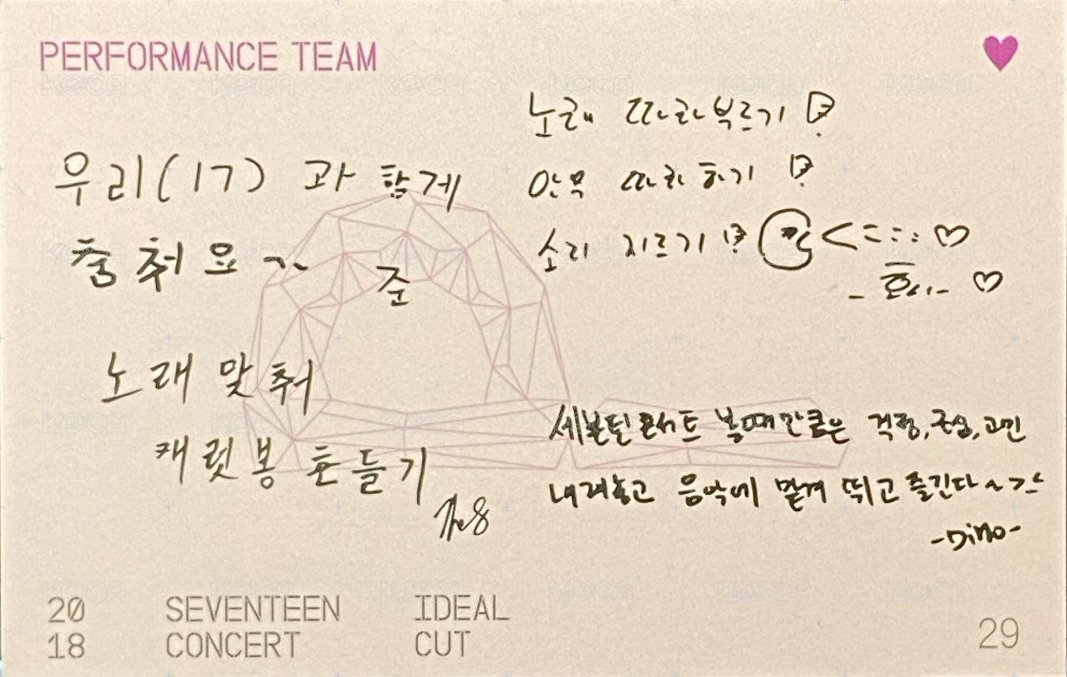 PERFORMANCE TEAM
우리(17)과 함께
춤춰요^^
준
노래 맞춰
캐럿봉 흔들기
The8
노래 따라부르기!
안무 따라하기!
소리 지르기!
-호시-
세븐틴콘서트 볼때만큼은 걱정,근심,고민
내려놓고 음악에 맡겨 뛰고 즐긴다~><
-Dino-
20 SEVENTEEN IDEAL
18 CONCERT CUT
29